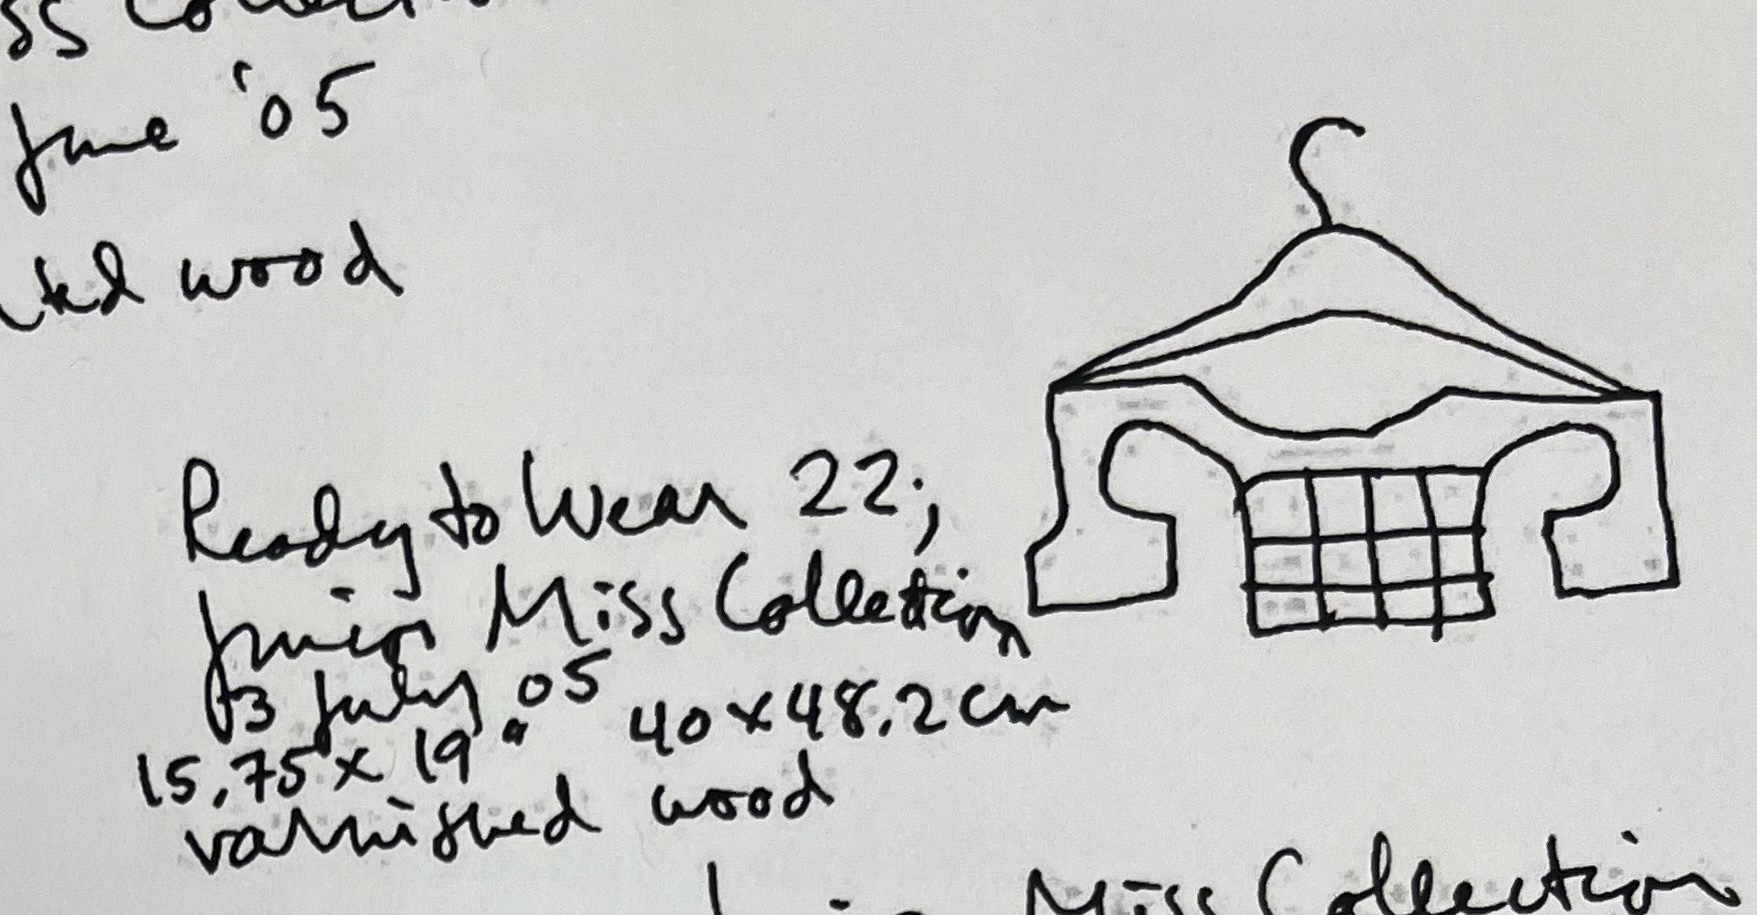 ss Collect
June '05
ted wood
Ready to Wear 22;
Junior Miss Collection
13 July 05
15.75 x 19" 40 x 48.2 cm
varnished wood
Miss Collection